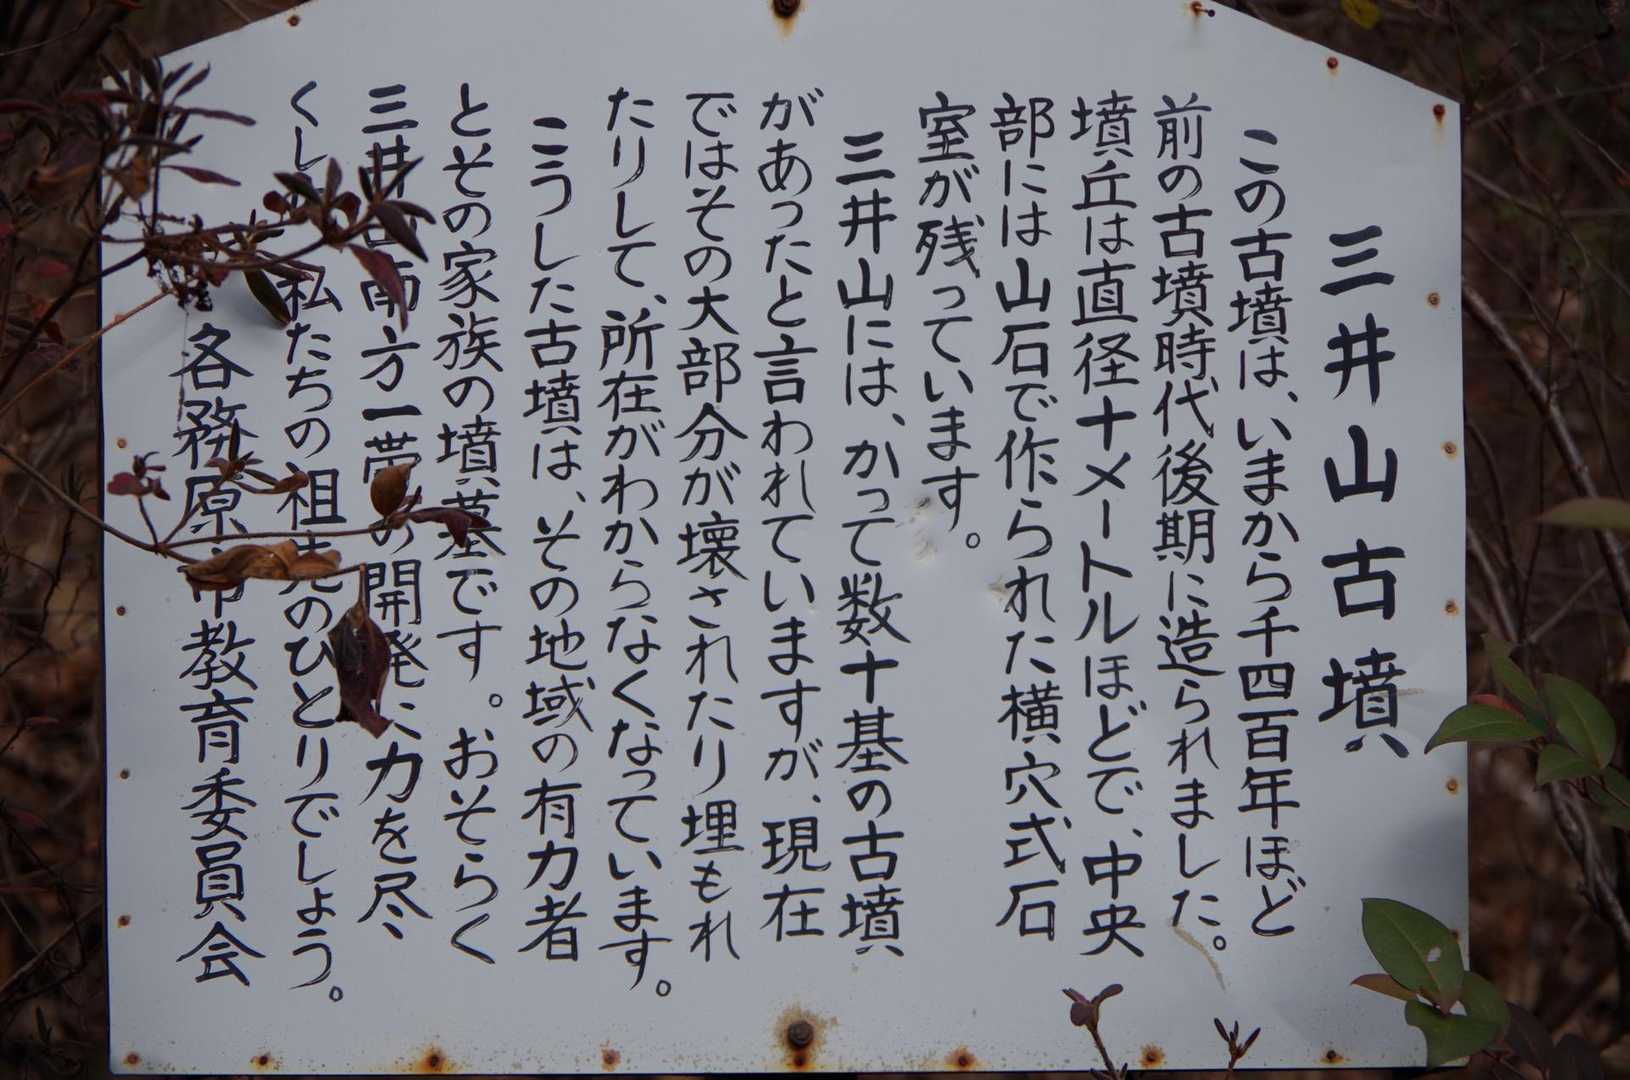 三井山古墳
この古墳は、いまから千四百年ほど
前の古墳時代後期に造られました。
墳丘は直径十メートルほどで、中央
部には山石で作られた横穴式石
室が残っています。
三井山には、かって数十基の古墳
があったと言われていますが、現在
ではその大部分が壊されたり埋もれ
たりして、所在がわからなくなっています。
こうした古墳は、その地域の有力者
とその家族の墳墓です。おそらく
三井山南方一帯の開発に力を尽
くし 私たちの祖先のひとりでしょう。
各務原市教育委員会